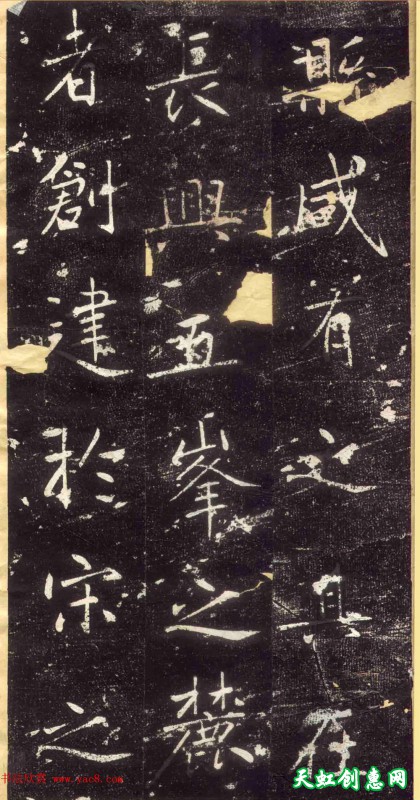 縣咸有之其在
長興五峯之麓
者創建於宋之
书法欣赏 www.yac8.com
天虹创惠网